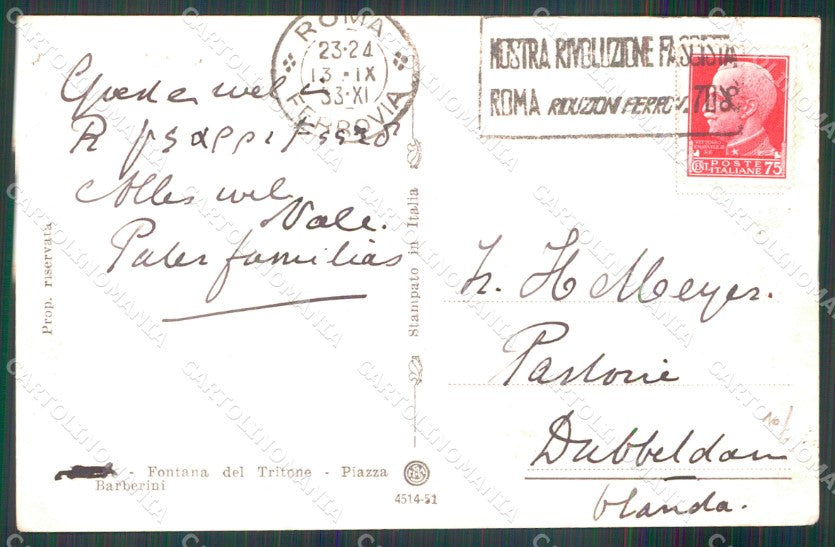 ROMA
FERROVIA
23·24
13·IX
33·XI
MOSTRA RIVOLUZIONE FASCISTA
ROMA RIDUZIONI FERROV. 70%
POSTE
ITALIANE
CENT. 75
Alles wel
Vale.
Pater familias
Prop. riservata
Stampato in Italia
H Meyer.
Pastorie
Dubbeldam
Olanda.
- Fontana del Tritone - Piazza
Barberini
4514-51
CARTOLINOMANIA